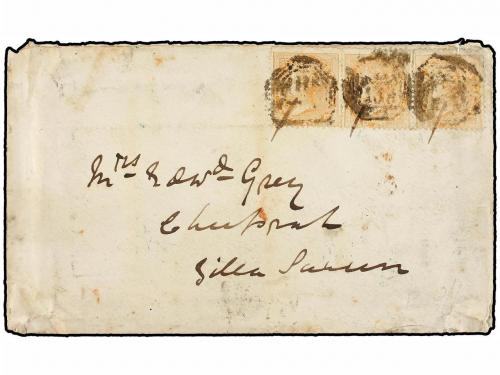 Mrs Edwd Grey
Chuprah
Zilla Sarun